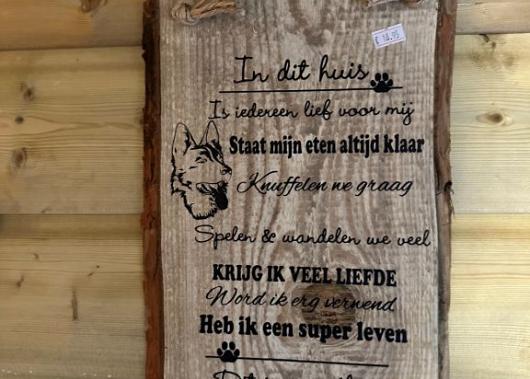 € 14,95
In dit huis
Is iedereen lief voor mij
Staat mijn eten altijd klaar
Knuffelen we graag
Spelen & wandelen we veel
KRIJG IK VEEL LIEFDE
Word ik erg verwend
Heb ik een super leven